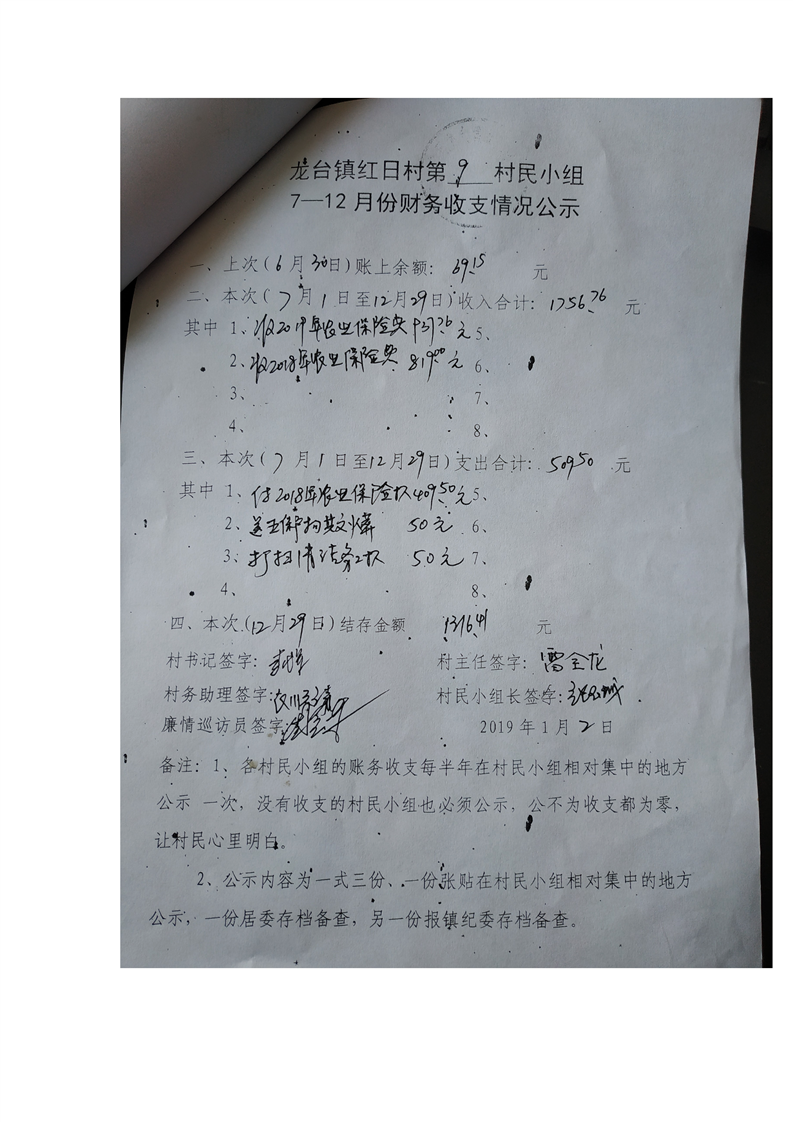 龙台镇红日村第9村民小组
7—12月份财务收支情况公示
一、上次(6月30日)账上余额: 69.15 元
二、本次(7月1日至12月29日)收入合计: 1756.76 元
其中 1、收2017年农业保险费937.76元 5、
2、收2018年农业保险费819.00元 6、
3、 7、
4、 8、
三、本次(7月1日至12月29日)支出合计: 509.50 元
其中 1、付2018年农业保险款409.50元 5、
2、 50元 6、
3、打扫清洁务工款 50元 7、
4、 8、
四、本次(12月29日)结存金额 1316.41 元
村书记签字: 村主任签字: 雷全龙
村务助理签字: 村民小组长签字:
廉情巡访员签字: 2019年1月2日
备注: 1、各村民小组的账务收支每半年在村民小组相对集中的地方
公示 一次, 没有收支的村民小组也必须公示, 公不为收支都为零,
让村民心里明白。
2、公示内容为一式三份、一份张贴在村民小组相对集中的地方
公示, 一份居委存档备查, 另一份报镇纪委存档备查。